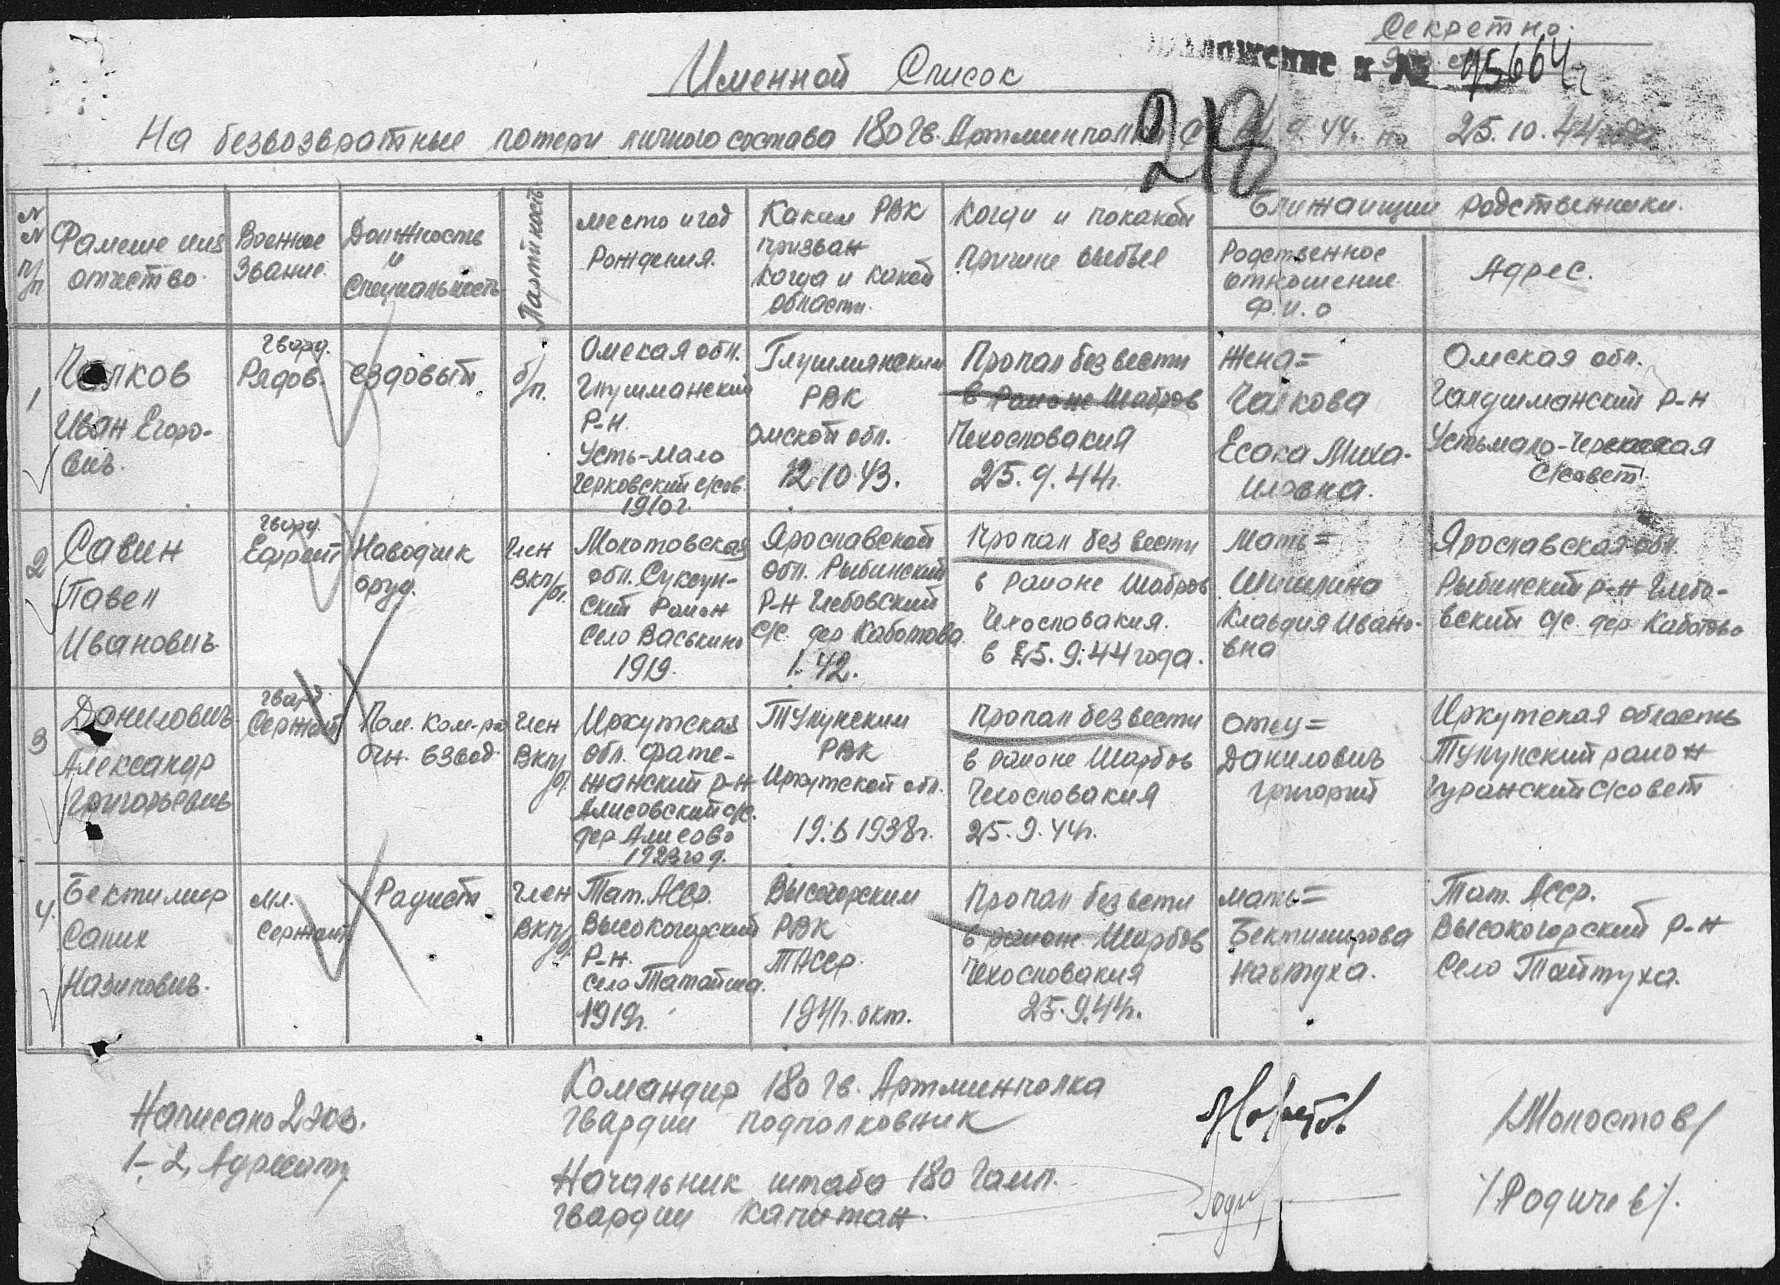 Секретно.
Приложение к № 45664
Именной Список
218
На безвозвратные потери личного состава 180 Гв. Артминполка с 9.44. по 25.10.44
№ № п/п
Фамилие имя отчество.
Военное Звание.
Должность и Специальность
Партийность
место и год Рождения.
Каким РВК призван когда и какой области.
Когда и покакой причине выбыл
Ближайшии родственники.
Родственное отношение Ф.И.О
Адрес.
1
Чалков
Иван Егоро-
вич.
гвард.
Рядов.
ездовый
б/п.
Омская обл.
Глушманский
Р-н.
Усть-Мало
Черковский с/сов.
1910г.
Глушмянским
РВК
Омской обл.
12.10.43.
Пропал без вести
в Районе Шабров
Чехословакия
25.9.44г.
Жена=
Чалкова
Миха-
иловна.
Омская обл.
Галушманский р-н
с/совет
2
Савин
Павел
Иванович.
гвард.
Ефрейт
Наводчик
оруд.
Член
ВКП/б/.
Молотовская
обл. Суксун-
ский Район
Село Васькино
1919.
Ярославской
обл. Рыбинский
Р-н Глебовский
с/с дер Каботова
1.42.
Пропал без вести
в районе Шабров
Чехословакия.
в 25.9.44 года.
Мать=
Шишлина
Клавдия Ивано-
вна
Ярославская обл
Рыбинский р-н Глебо-
вский с/с дер Каботово
3
Данилович
Александр
Григорьевич
гвард.
Сержант
Пом. Ком-ра
Огн. взвод.
Член
ВКП/б/.
Иркутская
обл. Фате-
жанский р-н
Алисовский с/с.
дер Алисово
1923 год.
Тулунским
РВК
Иркутской обл.
19.6 1938г.
Пропал без вести
в районе Шарбов
Чехословакия
25.9.44г.
Отец=
Данилович
Григорий
Иркутская область
Тулунский район
Гуранский с/совет
4.
Бектимир
Салих
Назипович.
Мл.
Сержант
Радист
Член
ВКП/б/
Тат. АССР.
Высокогорский
Р-н.
Село Татайша.
1919г.
Высогорским
РВК
ТАССР.
1941г. окт.
Пропал без вести
в районе Шарбов
Чехословакия
25.9.44г.
мать=
Бектимирова
Тат. АССР.
Высокогорский р-н
Село Тайтуха.
Написано 2 экз.
1-2, Адресату
Командир 180 Гв. Артминполка
гвардии подполковник
/Молостов/
Начальник штаба 180 Гамп.
гвардии капитан
/Родичев/.